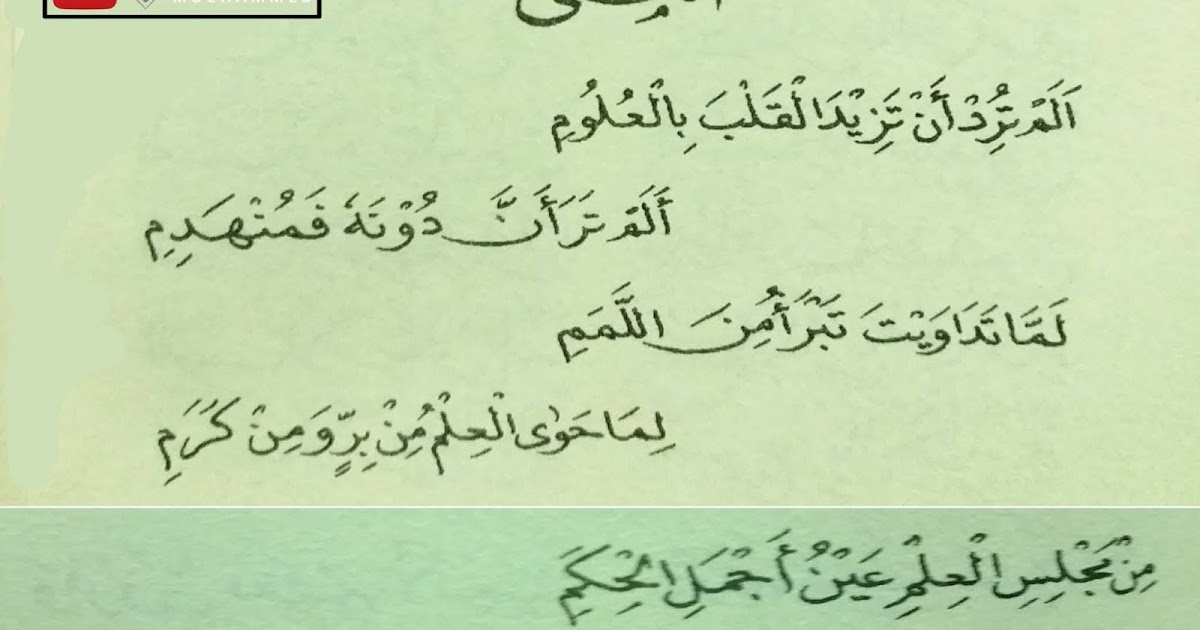 اَلَمْ تُرِدْ أَنْ تَزِيْدَ الْقَلْبَ بِالْعُلُومِ
أَلَمْ تَرَ أَنَّ دُوْنَهُ فَمُنْهَدِمِ
لَمَّا تَدَاوَيْتَ تَبْرَأُ مِنَ اللَّمَمِ
لِمَا حَوٰى الْعِلْمُ مِنْ بِرٍّ وَمِنْ كَرَمِ
مِنْ مَجْلِسِ الْعِلْمِ عَيْنُ أَجْمَلِ الْحِكَمِ